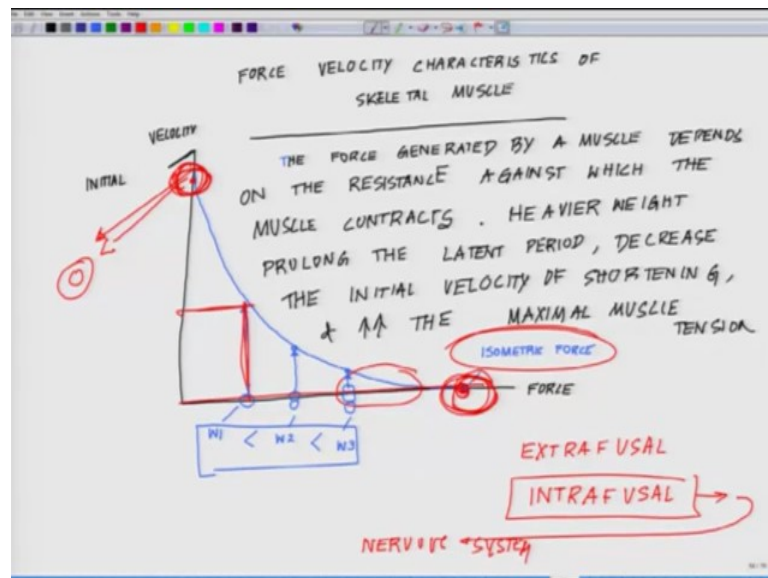 File Edit View Insert Actions Tools Help
FORCE VELOCITY CHARACTERISTICS OF
SKELETAL MUSCLE
VELOCITY
INITIAL
THE FORCE GENERATED BY A MUSCLE DEPENDS
ON THE RESISTANCE AGAINST WHICH THE
MUSCLE CONTRACTS. HEAVIER WEIGHT
PROLONG THE LATENT PERIOD, DECREASE
THE INITIAL VELOCITY OF SHORTENING,
& ↑↑ THE MAXIMAL MUSCLE
TENSION
ISOMETRIC FORCE
FORCE
W1 < W2 < W3
EXTRAFUSAL
INTRAFUSAL
SYSTEM